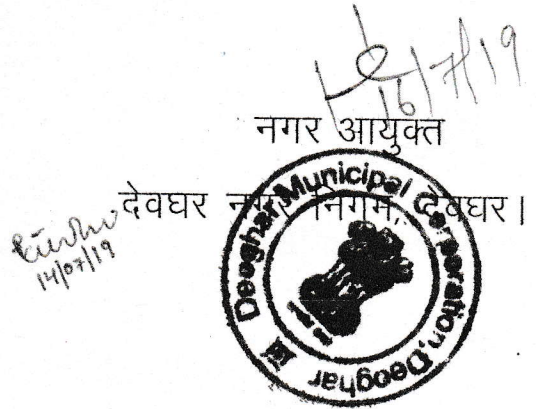 16/7/19
नगर आयुक्त
देवघर नगर निगम, देवघर।
14/07/19
Deoghar Municipal Corporation, Deoghar